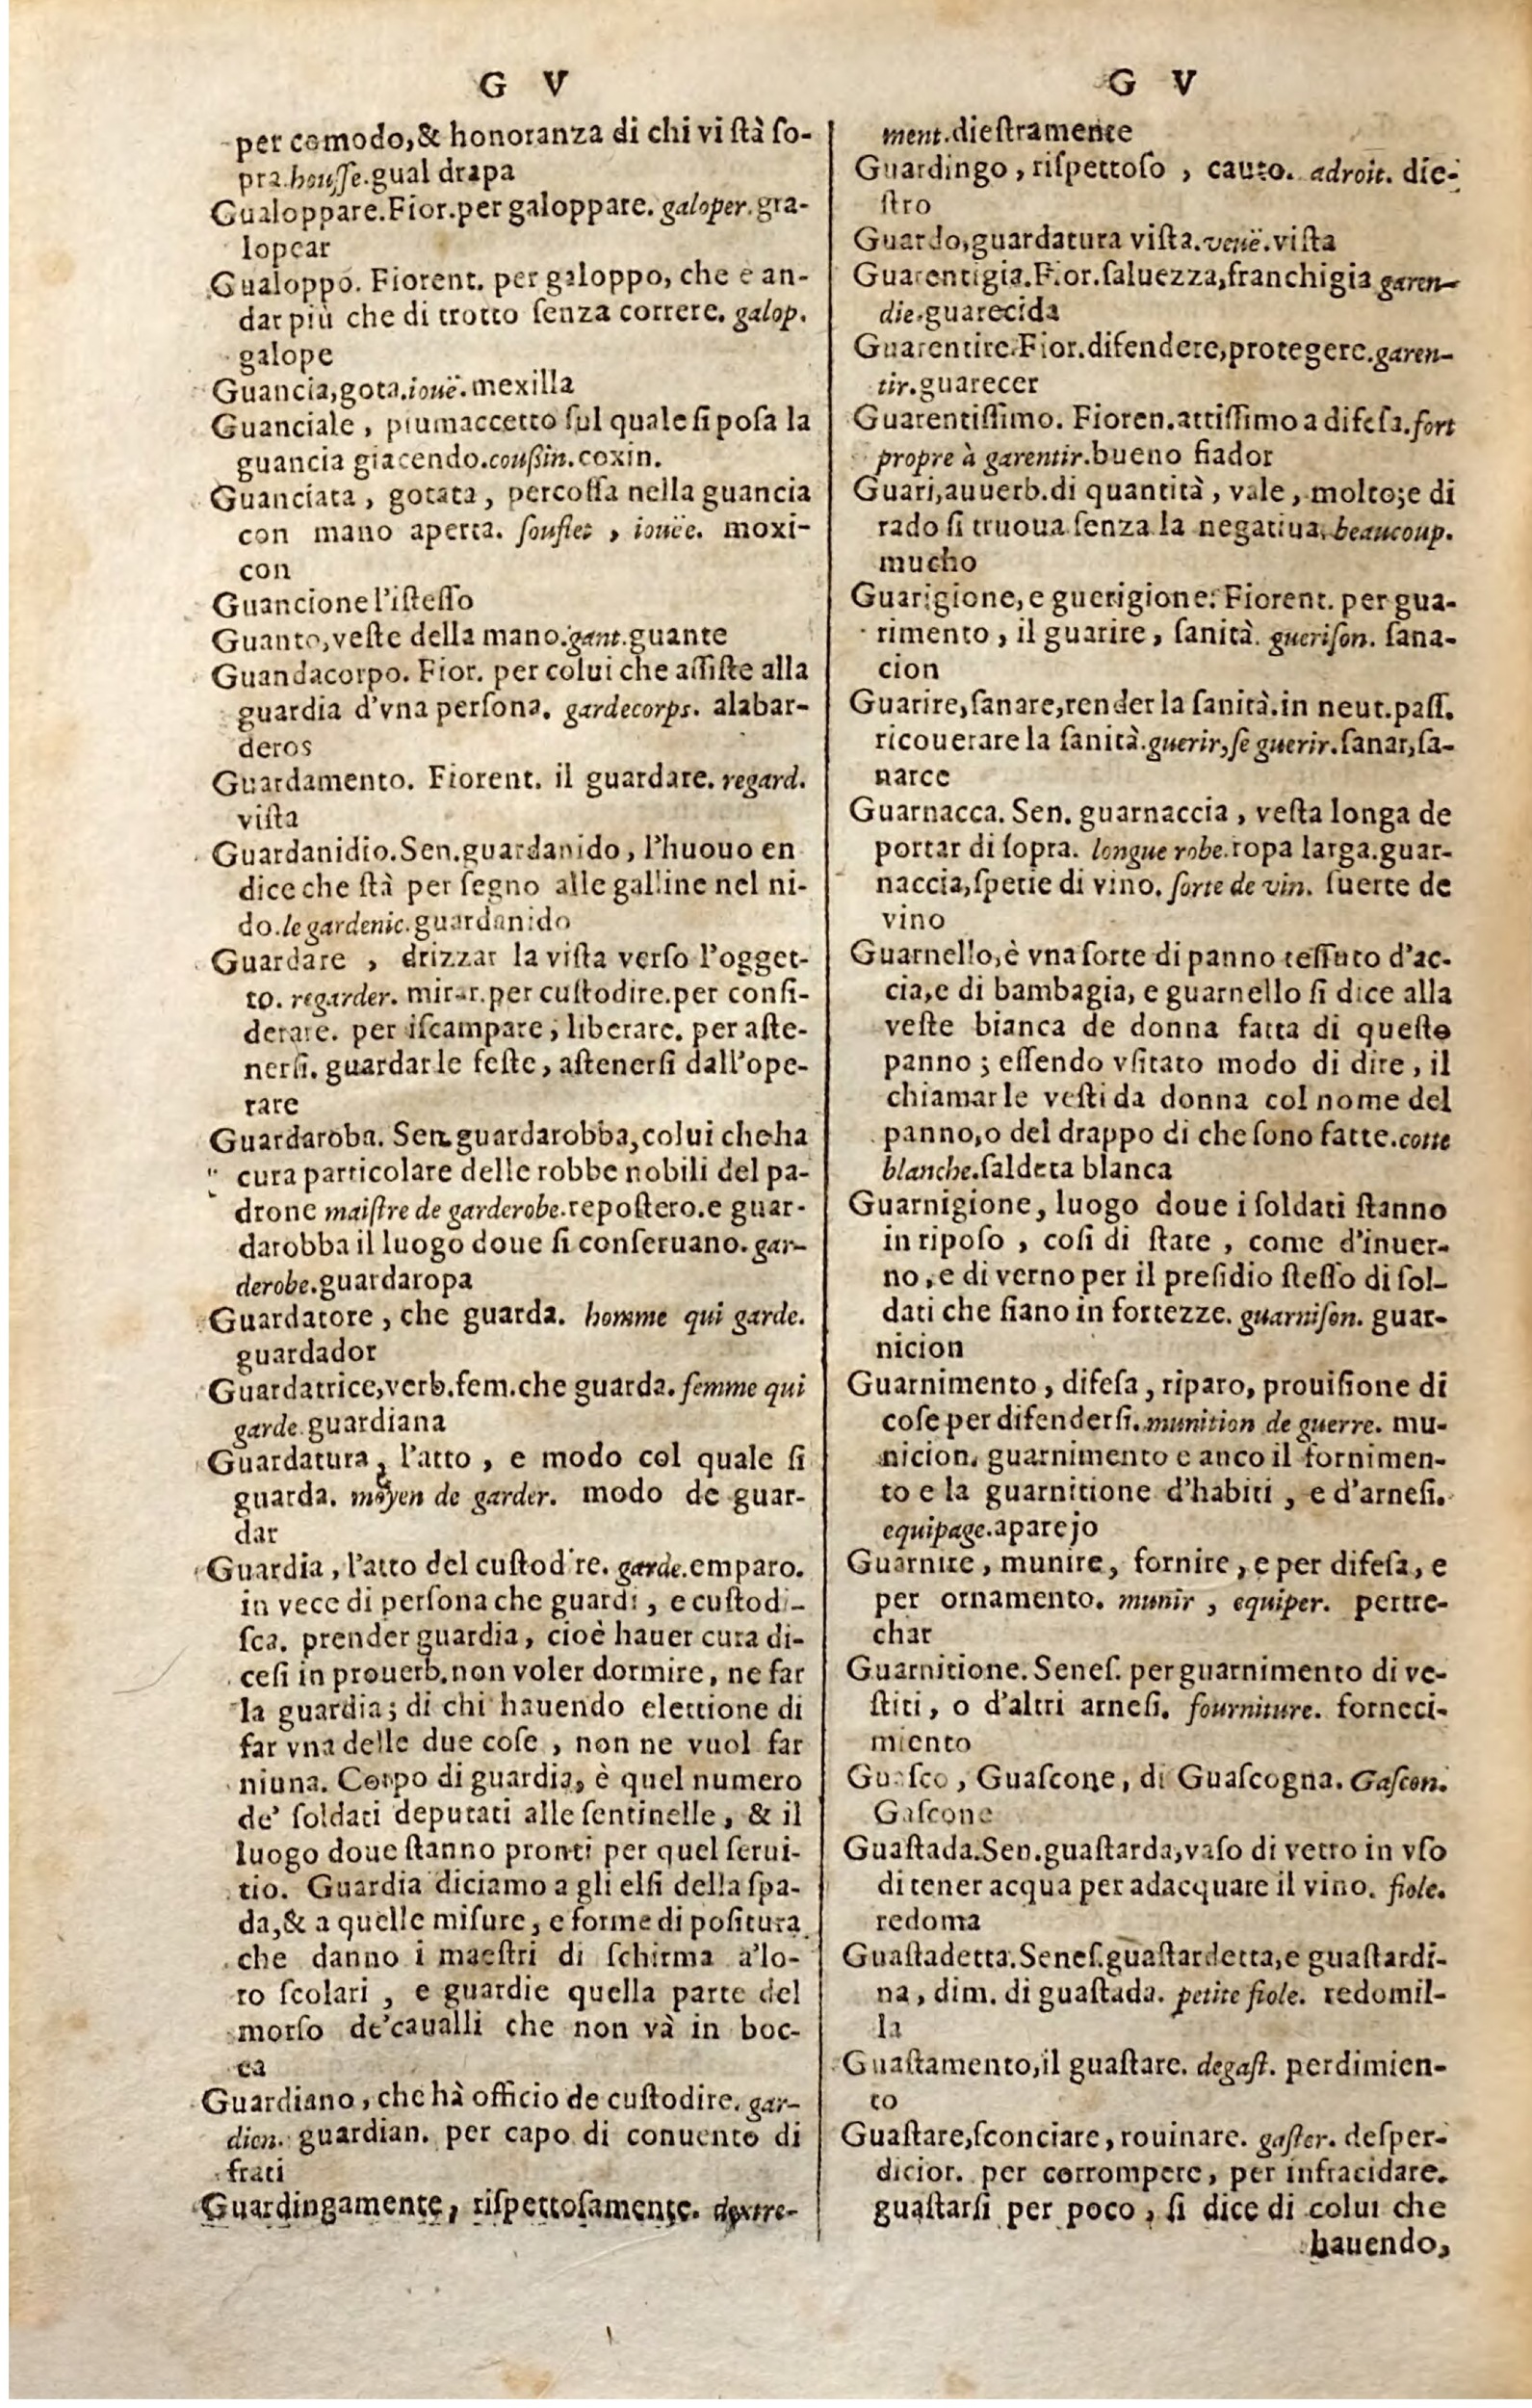 G V
per comodo,& honoranza di chi vi stà so-
pra.housse.gual drapa
Gualoppare.Fior.per galoppare. galoper.gra-
lopear
Gualoppo. Fiorent. per galoppo, che e an-
dar più che di trotto senza correre. galop.
galope
Guancia,gota.iouë.mexilla
Guanciale , piumaccetto sul quale si posa la
guancia giacendo.coußin.coxin.
Guanciata , gotata , percossa nella guancia
con mano aperta. souflet , iouëe. moxi-
con
Guancione l'istesso
Guanto,veste della mano.gant.guante
Guandacorpo. Fior. per colui che assiste alla
guardia d'vna persona. gardecorps. alabar-
deros
Guardamento. Fiorent. il guardare. regard.
vista
Guardanidio.Sen.guardanido, l'huouo en
dice che stà per segno alle galline nel ni-
do.le gardenic.guardanido
Guardare , drizzar la vista verso l'ogget-
to. regarder. mirar.per custodire.per consi-
derare. per iscampare, liberare. per aste-
nersi. guardar le feste, astenersi dall'ope-
rare
Guardaroba. Sen.guardarobba,colui che ha
cura particolare delle robbe nobili del pa-
drone maistre de garderobe.repostero.e guar-
darobba il luogo doue si conseruano. gar-
derobe.guardaropa
Guardatore , che guarda. homme qui garde.
guardador
Guardatrice,verb.fem.che guarda. femme qui
garde.guardiana
Guardatura, l'atto , e modo col quale si
guarda. moyen de garder. modo de guar-
dar
Guardia , l'atto del custodire. garde.emparo.
in vece di persona che guardi , e custodi-
sca. prender guardia, cioè hauer cura di-
cesi in prouerb.non voler dormire, ne far
la guardia; di chi hauendo elettione di
far vna delle due cose , non ne vuol far
niuna. Corpo di guardia, è quel numero
de' soldati deputati alle sentinelle, & il
luogo doue stanno pronti per quel serui-
tio. Guardia diciamo a gli elsi della spa-
da,& a quelle misure, e forme di positura
che danno i maestri di schirma a'lo-
ro scolari , e guardie quella parte del
morso de'caualli che non và in boc-
ca
Guardiano , che hà officio de custodire. gar-
dien. guardian. per capo di conuento di
frati
Guardingamente, rispettosamente. dextre-
G V
ment.diestramente
Guardingo , rispettoso , cauto. adroit. die-
stro
Guardo,guardatura vista.veuë.vista
Guarentigia.Fior.saluezza,franchigia garen-
die.guarecida
Guarentire.Fior.difendere,protegere.garen-
tir.guarecer
Guarentissimo. Fioren.attissimo a difesa.fort
propre à garentir.bueno fiador
Guari,auuerb.di quantità , vale , molto;e di
rado si truoua senza la negatiua.beaucoup.
mucho
Guarigione, e guerigione. Fiorent. per gua-
rimento , il guarire, sanità. guerison. sana-
cion
Guarire,sanare,render la sanità.in neut.pass.
ricouerare la sanità.guerir,se guerir.sanar,sa-
narce
Guarnacca. Sen. guarnaccia , vesta longa de
portar di sopra. longue robe.ropa larga.guar-
naccia,spetie di vino. sorte de vin. suerte de
vino
Guarnello,è vna sorte di panno tessuto d'ac-
cia,e di bambagia, e guarnello si dice alla
veste bianca de donna fatta di questo
panno ; essendo vsitato modo di dire , il
chiamar le vesti da donna col nome del
panno,o del drappo di che sono fatte.cotte
blanche.saldeta blanca
Guarnigione, luogo doue i soldati stanno
in riposo , cosi di state , come d'inuer-
no,e di verno per il presidio stesso di sol-
dati che siano in fortezze. guarnison. guar-
nicion
Guarnimento , difesa , riparo, prouisione di
cose per difendersi. munition de guerre. mu-
nicion. guarnimento e anco il fornimen-
to e la guarnitione d'habiti , e d'arnesi.
equipage.aparejo
Guarnire , munire, fornire , e per difesa, e
per ornamento. munir , equiper. pertre-
char
Guarnitione. Senes. per guarnimento di ve-
stiti , o d'altri arnesi. fourniture. forneci-
miento
Guasco , Guascone, di Guascogna. Gascon.
Gascone
Guastada.Sen.guastarda,vaso di vetro in vso
di tener acqua per adacquare il vino. fiole.
redoma
Guastadetta.Senes.guastardetta,e guastardi-
na , dim. di guastada. petite fiole. redomil-
la
Guastamento,il guastare. degast. perdimien-
to
Guastare,sconciare, rouinare. gaster. desper-
dicior. per corrompere, per infracidare.
guastarsi per poco , si dice di colui che
hauendo,